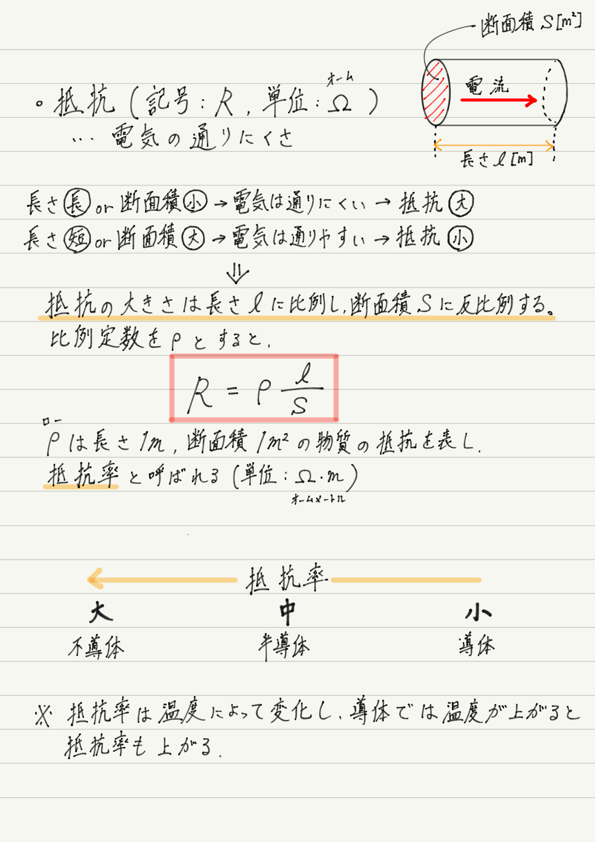 断面積 S[m²]
オーム
。抵抗 (記号:R, 単位:Ω)
… 電気の通りにくさ
電流
長さ l [m]
長さ長or断面積小→電気は通りにくい→抵抗大
長さ短or断面積大→電気は通りやすい→抵抗小
⇓
抵抗の大きさは長さlに比例し,断面積Sに反比例する。
比例定数をρとすると,
R = ρ l/S
ロー
ρは長さ1m, 断面積1m²の物質の抵抗を表し,
抵抗率と呼ばれる (単位:Ω・m)
オームメートル
抵抗率
大 中 小
不導体 半導体 導体
※ 抵抗率は温度によって変化し,導体では温度が上がると
抵抗率も上がる.